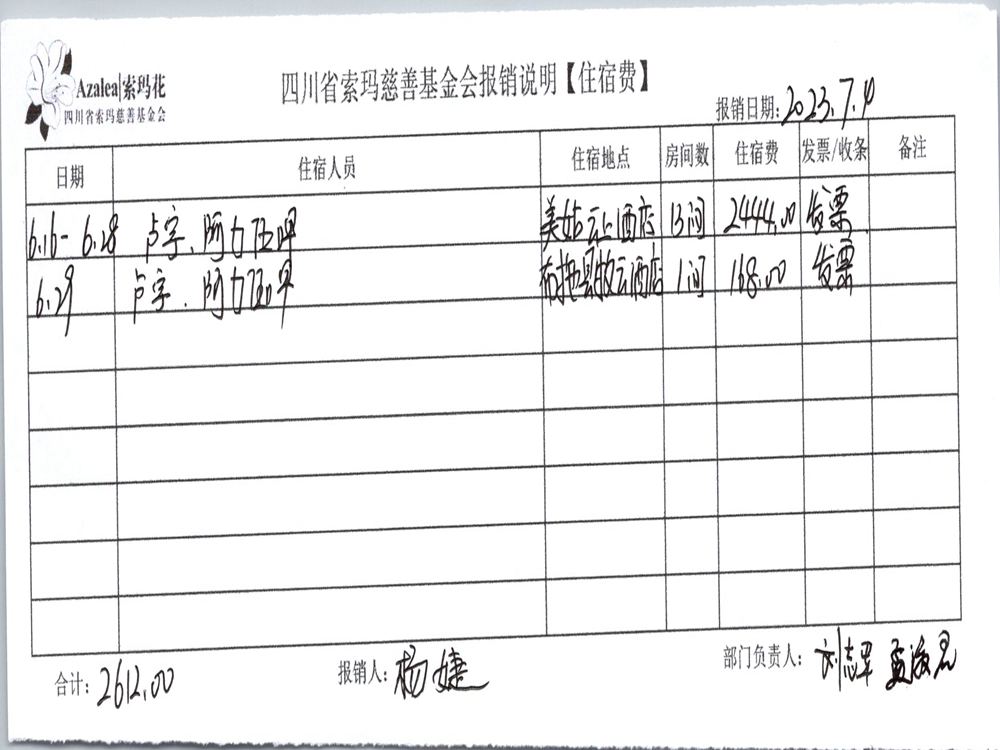 Azalea|索玛花
四川省索玛慈善基金会
四川省索玛慈善基金会报销说明【住宿费】
报销日期：2023.7.4
日期 住宿人员 住宿地点 房间数 住宿费 发票/收条 备注
6.16-6.28 卢宇、阿力 美姑云上酒店 13间 2444.00 发票
6.29 卢宇、阿力 布拖县牧云酒店 1间 168.00 发票
合计：2612.00 报销人：杨婕 部门负责人：刘志军